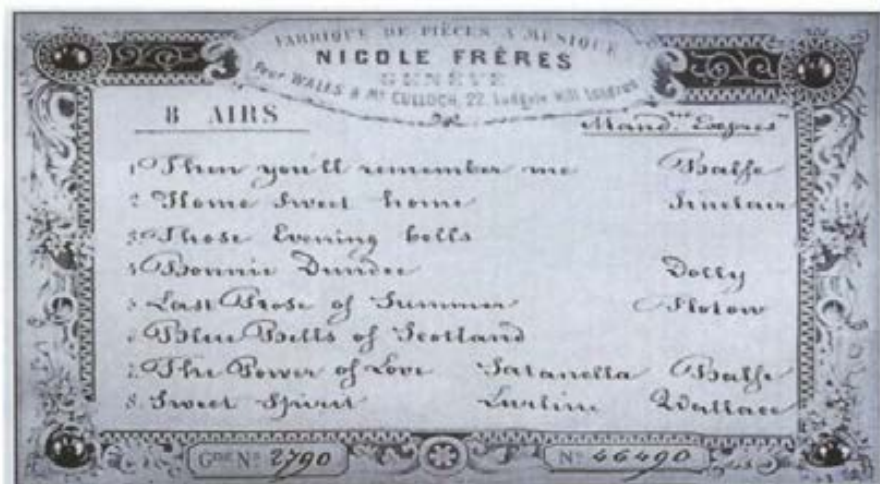 FABRIQUE DE PIÈCES A MUSIQUE
NICOLE FRÈRES
GENÈVE
Pour WALES & Mc CULLOCH, 22, Ludgate Hill Londres
8 AIRS Mand.ne Expres
1 Then you'll remember me Balfe
2 Home Sweet home Sinclair
3 Those Evening bells
4 Bonnie Dundee Dolby
5 Last Rose of Summer Flotow
6 Blue Bells of Scotland
7 The Power of Love Satanella Balfe
8 Sweet Spirit Lurline Wallace
GME No 2790 No 46490